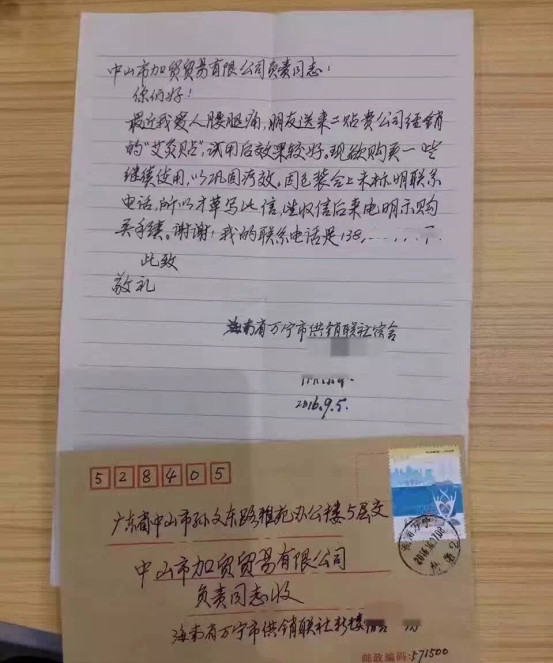 中山市加贸贸易有限公司负责同志:
你们好!
最近我爱人腰腿痛,朋友送来二贴贵公司经销
的“艾灸贴”,试用后效果较好。现欲购买一些
继续使用,以巩固疗效。因包装合上未标明联系
电话,所以才草写此信,望收信后来电明示购
买手续。谢谢!我的联系电话是138
此致
敬礼
海南省万宁市供销联社宿舍
2016.9.5.
528405
广东省中山市孙文东路雅苑办公楼5层交
中山市加贸贸易有限公司
负责同志收
海南省万宁市供销联社新楼
邮政编码:571500